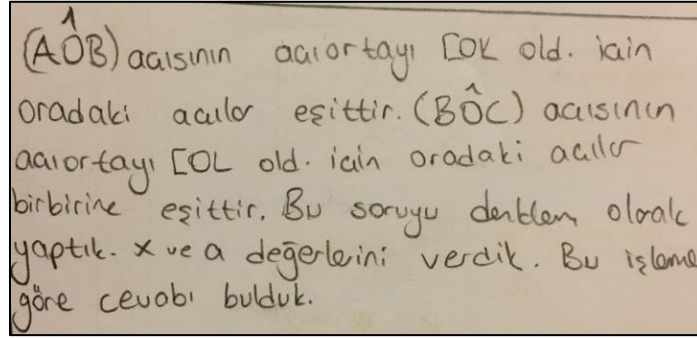 (AÔB) açısının açıortayı [OK old. için
oradaki açılar eşittir. (BÔC) açısının
açıortayı [OL old. için oradaki açılar
birbirine eşittir. Bu soruyu denklem olarak
yaptık. x ve a değerlerini verdik. Bu işleme
göre cevabı bulduk.